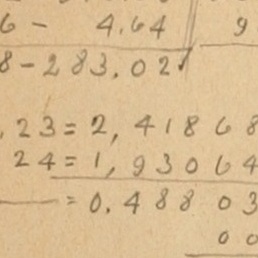 6 - 4.64 9
8 - 283.02
,23 = 2,41868
24 = 1,93064
= 0.48803
00